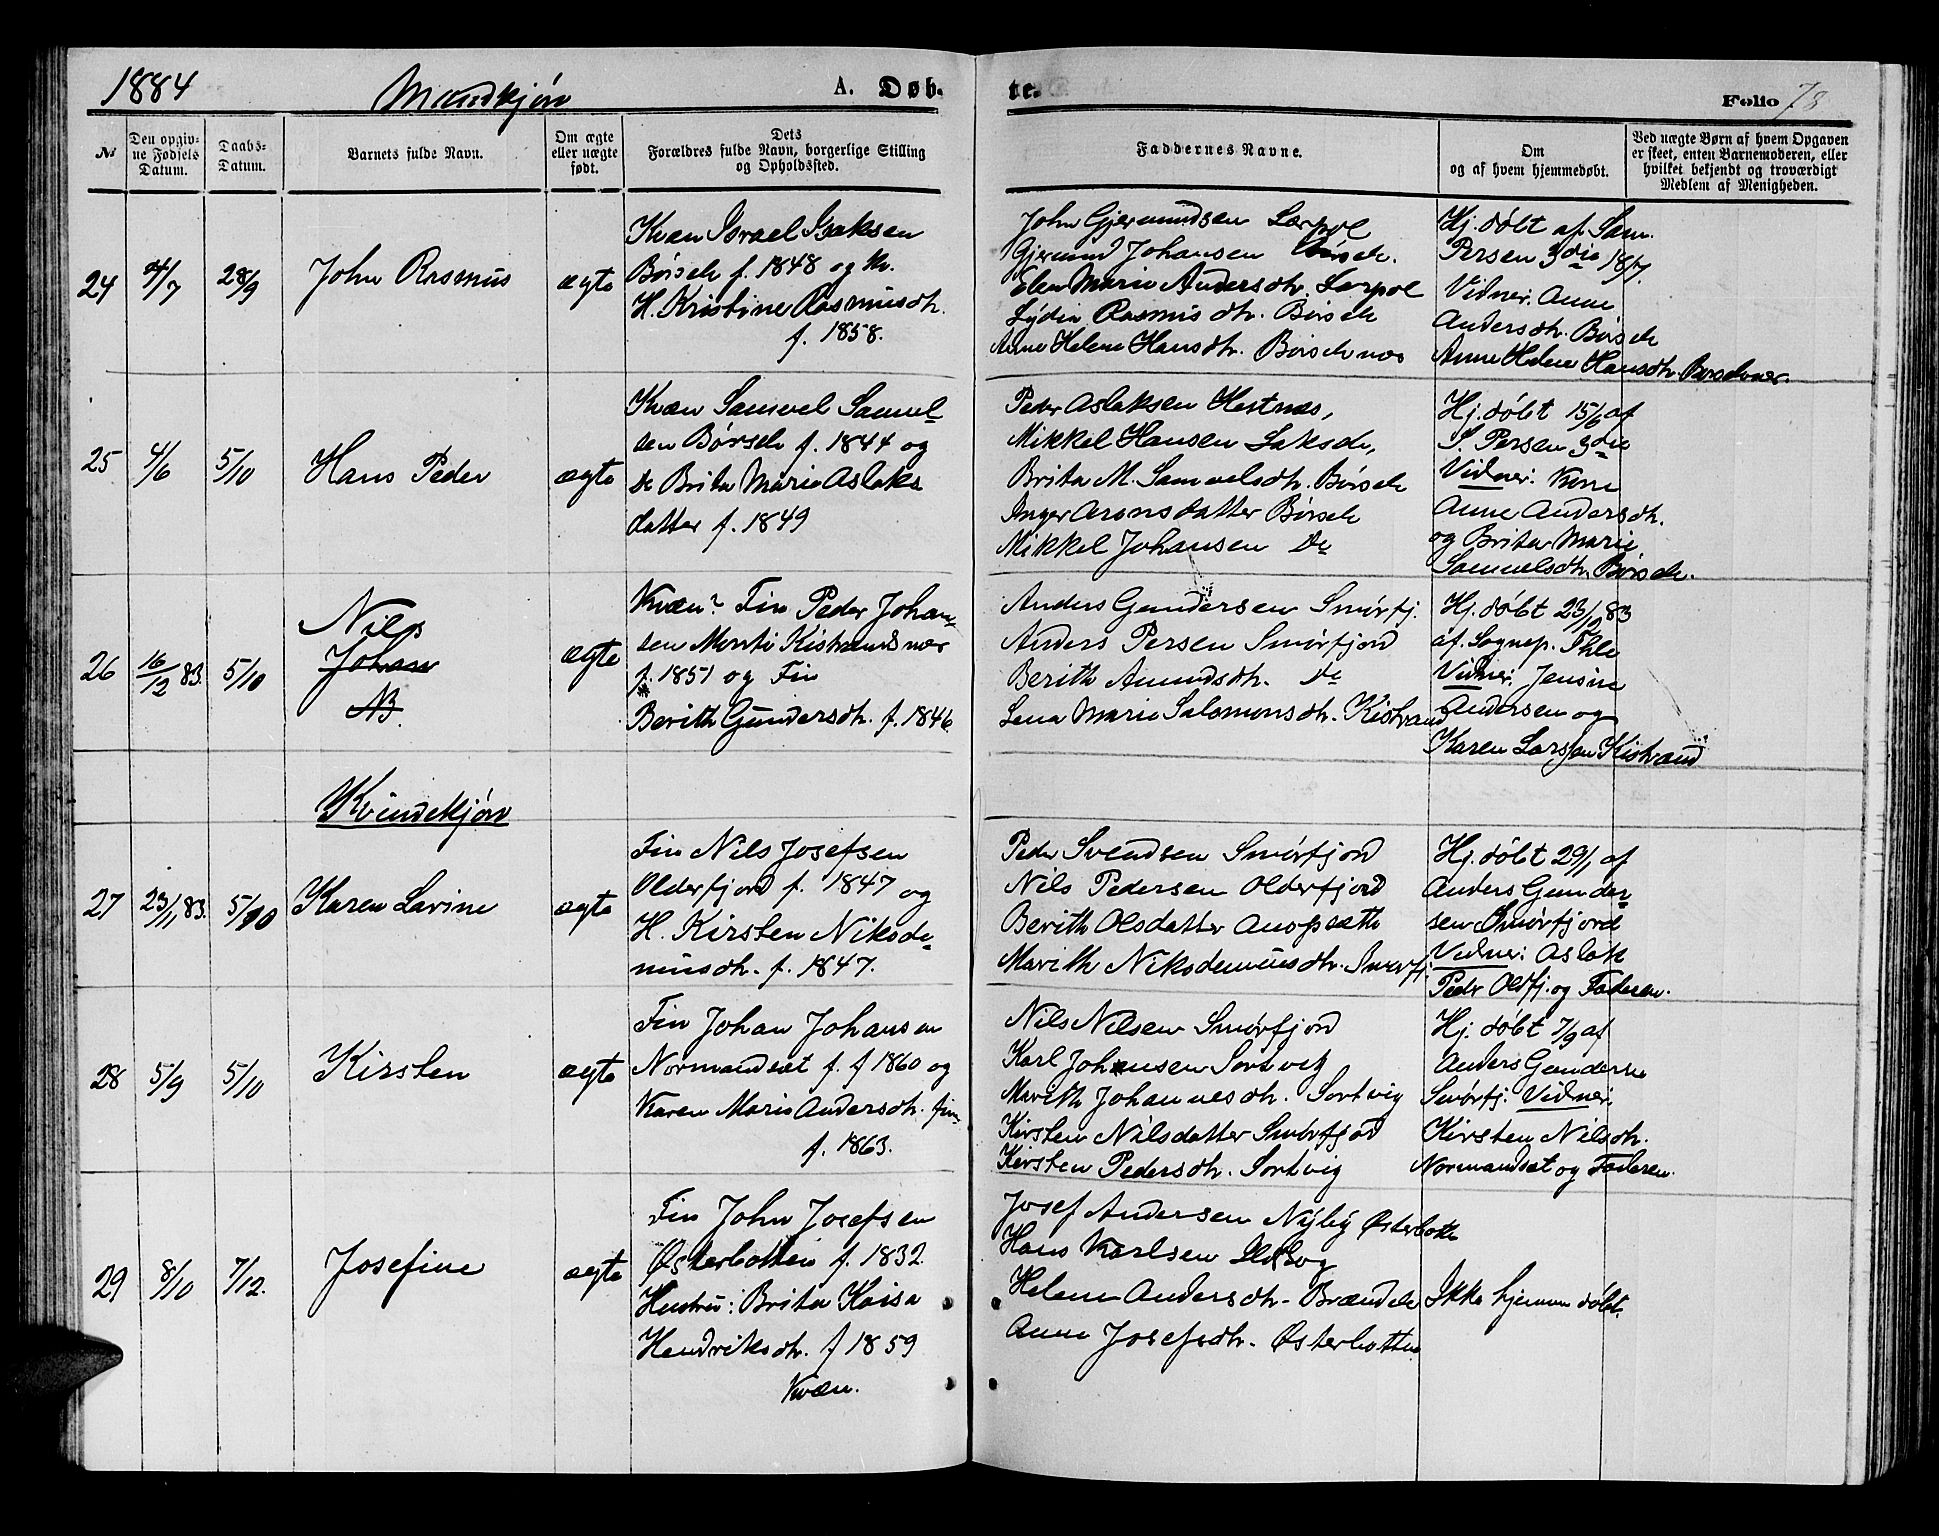 1884 Mandkjøn A. Døb- te. Folio 78
№
Den opgiv-
ne Fødsels
Datum.
Daabs-
Datum.
Barnets fulde Navn.
Om ægte
eller uægte
født.
Dets
Forældres fulde Navn, borgerlige Stilling
og Opholdssted.
Faddernes Navne.
Om
og af hvem hjemmedøbt.
Ved uægte Børn af hvem Opgaven
er skeet, enten Barnemoderen, eller
hvilket bekjendt og troværdigt
Medlem af Menigheden.
24
4/7
28/9
John Rasmus
ægte
Kvæn Israel Isaksen
Børselv f. 1848 og
H. Kristine Rasmusdtr.
f. 1858.
John Gjermundsen
Gjermund Johansen Børselv.
Elen Marie Andersdtr.
Lydia Rasmusdtr. Børselv
Anne Helene Hansdtr. Børselvnæs
Hj. døbt af Sam.
Persen 3die 18/7.
Vidner. Anne
Andersdtr. Børselv
Anne Helene Hansdtr. Børselvnæs.
25
4/6
5/10
Hans Peder
ægte
Kvæn Samvel Samuel-
sen Børselv f. 1844 og
Do Brita Marie Aslaks
datter f. 1849
Peder Aslaksen Hestnæs,
Mikkel Hansen Lakselv,
Brita M. Samuelsdtr. Børselv
Inger Aronsdatter Børselv
Mikkel Johansen Do
Hj. døbt 15/6 af
S. Persen 3die
Vidner: Kone
Anne Andersdtr.
og Brita Marie
Samuelsdtr. Børselv.
26
16/12 83.
5/10
Nils
Johan
NB.
ægte
Kvæn? Fin Peder Johan-
sen Monti Kistrandsnæs
f. 1851 og Fin
Berith Gundersdtr. f. 1846
Anders Gundersen Smørfj.
Anders Persen Smørfjord
Berith Amundsdtr. Do
Lena Marie Salomonsdtr. Kistrand
Hj. døbt 23/12 83
af Sognep. Ihle
Vidner. Jensine
Andersen og
Karen Larssen Kistrand
Kvindekjøn
27
23/11 83.
5/10
Karen Lavine
ægte
Fin Nils Josefsen
Olderfjord f. 1847 og
H. Kirsten Nikode-
musdtr. f. 1847.
Peder Svendsen Smørfjord
Nils Pedersen Olderfjord
Berith Olsdatter
Marith Nikodemusdtr. Smørfj.
Hj. døbt 29/1 af
Anders Gunder-
sen Smørfjord
Vidner: Aslak
Peder Oldfj. og Faderen.
28
5/9
5/10
Kirsten
ægte
Fin Johan Johansen
Normandsæt f. f 1860 og
Karen Marie Andersdtr. fin
f. 1863.
Nils Nilsen Smørfjord
Karl Johansen Sortvig
Marith Johannesdtr. Sortvig
Kirsten Nilsdatter Smørfjord
Kirsten Pedersdtr. Sortvig
Hj. døbt 7/9 af
Anders Gundersen
Smørfj. Vidner.
Kirsten Nilsdtr.
Normandsæt og Faderen.
29
8/10
7/12.
Josefine
ægte
Fin John Josefsen
Østerbotten f. 1832.
Hustru: Brita Kaisa
Hendriksdtr. f 1859
Kvæn.
Josef Andersen Nyby Østerbotten
Hans Karlsen
Helene Andersdtr. Brændelv
Anne Josefsdtr. Østerbotten
Ikke hjemmedøbt.